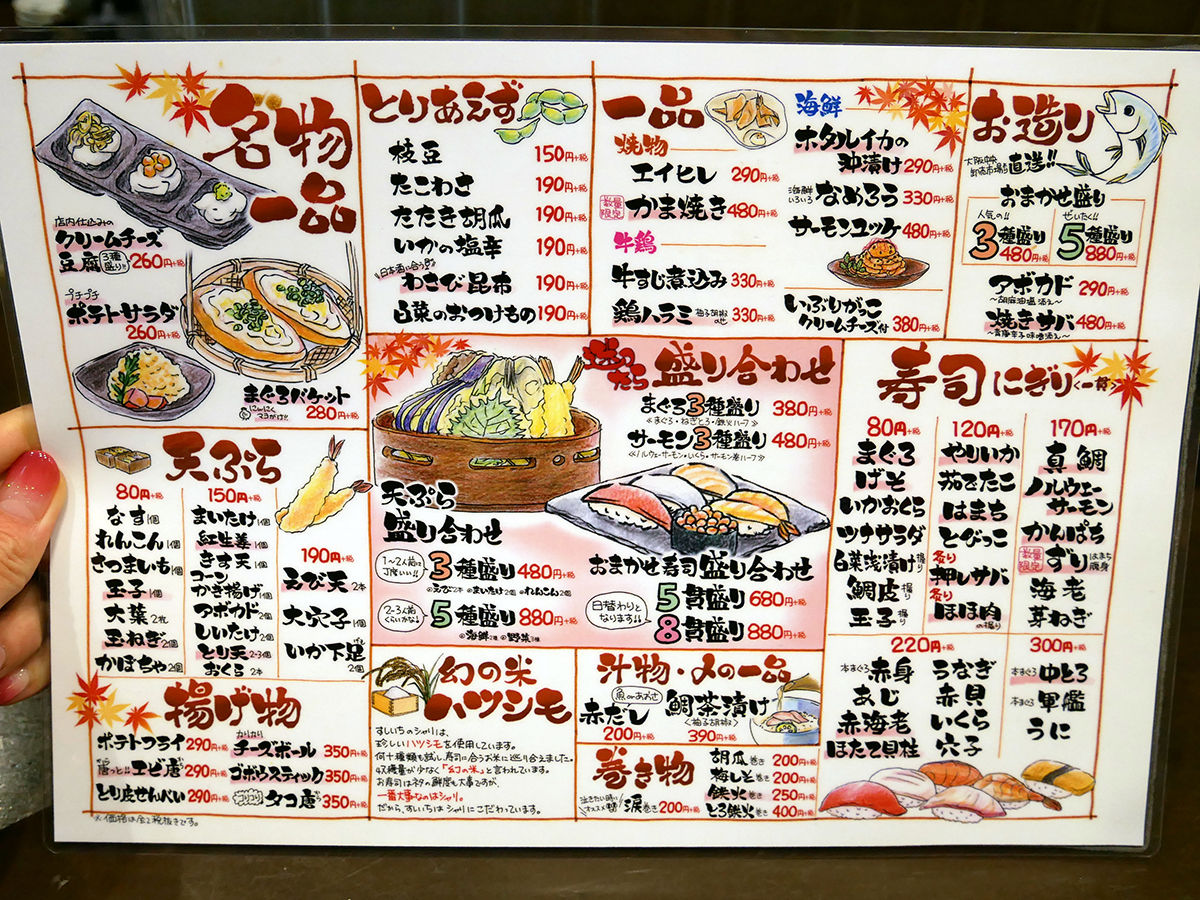 名物一品
店内仕込みの
クリームチーズ
豆腐 3種盛り!! 260円+税
プチプチ
ポテトサラダ
260円+税
まぐろバケット
にんにくマヨがけ!! 280円+税
とりあえず
枝豆 150円+税
たこわさ 190円+税
たたき胡瓜 190円+税
いかの塩辛 190円+税
日本酒に合う
わさび昆布 190円+税
白菜のおつけもの 190円+税
一品
焼物
エイヒレ 290円+税
数量限定 かま焼き 480円+税
牛鶏
牛すじ煮込み 330円+税
鶏ハラミ 柚子胡椒のせ 330円+税
海鮮
ホタルイカの
沖漬け 290円+税
海鮮いろいろ なめろう 330円+税
サーモンユッケ 480円+税
いぶりがっこ
クリームチーズ付 380円+税
お造り
直送!!
おまかせ盛り
人気の!!
3種盛り
480円+税
ぜいたく!!
5種盛り
880円+税
アボカド 290円+税
〜胡麻油塩添え〜
焼きサバ 480円+税
天ぷら
80円+税
なす 1個
れんこん 1個
さつまいも 1個
玉子 1個
大葉 2枚
玉ねぎ 2個
かぼちゃ 2個
150円+税
まいたけ 1個
紅生姜 1個
きす天 1個
コーン
かき揚げ 1個
アボカド 2個
しいたけ 2個
とり天 2-3個
おくら 2本
190円+税
えび天 2本
大穴子 1個
いか下足 2個
迷ったら 盛り合わせ
まぐろ3種盛り 380円+税
<まぐろ・ねぎとろ・鉄火ハーフ>
サーモン3種盛り 480円+税
<ノルウェーサーモン・いくら・サーモン巻ハーフ>
天ぷら
盛り合わせ
1〜2人前に丁度いい!! 3種盛り 480円+税
えび2本 まいたけ2個 れんこん2個
2-3人前くらいかな♩ 5種盛り 880円+税
海鮮2種 野菜3種
おまかせ寿司盛り合わせ
日替わりとなります!!
5貫盛り 680円+税
8貫盛り 880円+税
寿司にぎり<一貫>
80円+税
まぐろ
げそ
いかおくら
ツナサラダ
白菜浅漬け 握り
鯛皮 握り
玉子 握り
120円+税
やりいか
茹でたこ
はまち
とびっこ
炙り
押しサバ
炙り
ほほ肉の握り
170円+税
真鯛
ノルウェー
サーモン
かんぱち
数量限定 ずり はまち腹身
海老
芽ねぎ
220円+税
本まぐろ 赤身
あじ
赤海老
ほたて貝柱
うなぎ
赤貝
いくら
穴子
300円+税
本まぐろ 中とろ
本まぐろ 軍艦
うに
揚げ物
ポテトフライ 290円+税
唐っ!!エビ唐 290円+税
とり皮せんべい 290円+税
チーズボール 350円+税
ゴボウスティック 350円+税
タコ唐 350円+税
※価格は全て税抜きです。
幻の米
ハツシモ
すしいちのシャリは、
珍しいハツシモを使用しています。
何十種類も試し、寿司に合うお米に巡り合えました。
収穫量が少なく「幻の米」と言われています。
お寿司はネタの鮮度も大事ですが、
一番大事なのはシャリ。
だから、すしいちはシャリにこだわっています。
汁物・〆の一品
魚orあおさ
赤だし
200円+税
鯛茶漬け
<柚子胡椒>
390円+税
巻き物
泣きたい時にオススメ 涙巻き 200円+税
胡瓜巻き 200円+税
梅しそ巻き 200円+税
鉄火巻き 250円+税
とろ鉄火巻き 400円+税